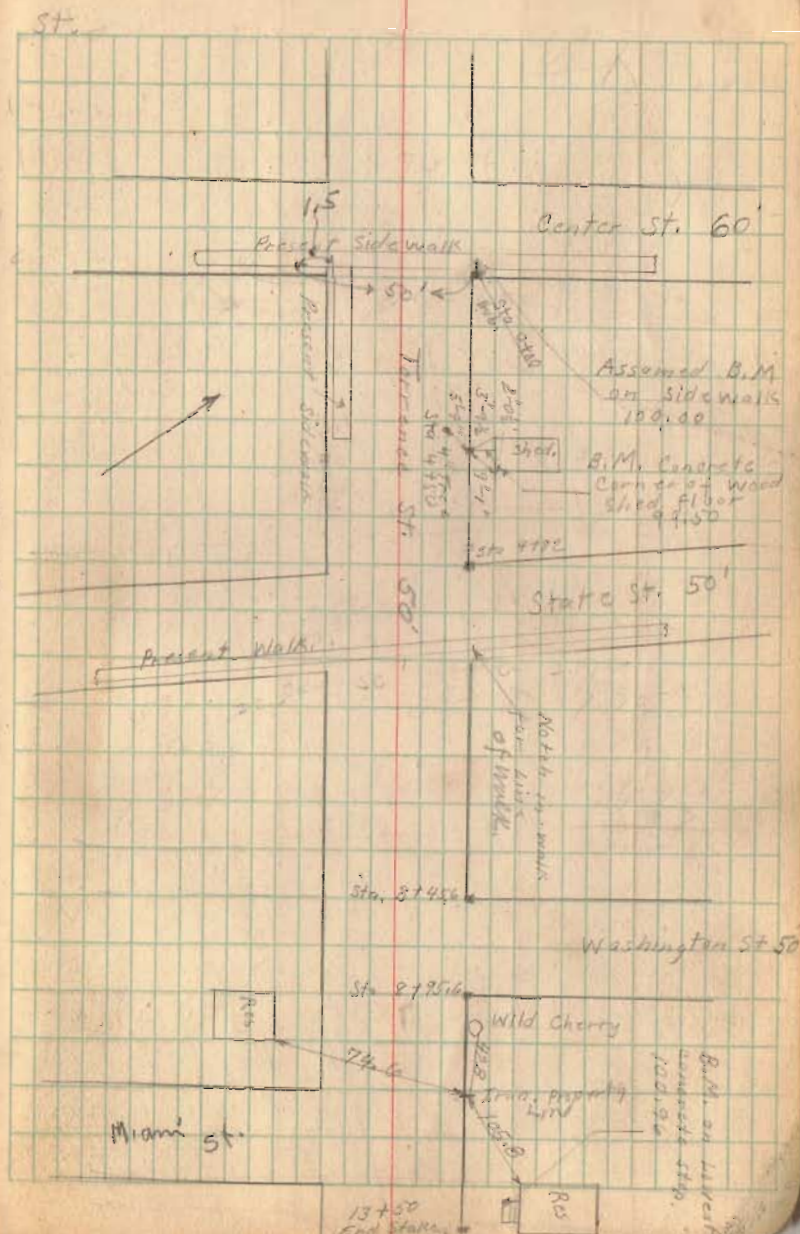 St.
1.5
Center St. 60'
Present Sidewalk
50'
Present Sidewalk
Torrence St. 50'
Assumed B.M.
on Sidewalk
100.00
Shed.
B.M. Concrete
Corner of wood
Shed floor
99.50
Sta 4+02
State St. 50'
Present Walk.
Notch in walk
for Line
of Walk.
Sta. 8+45.6
Washington St 50'
Sta. 8+95.6
Res
Wild Cherry
74.6
Iron. Property
Line
B.M. on Lowest
concrete step.
100.96
Miami St.
Res
13+50
End Stake.